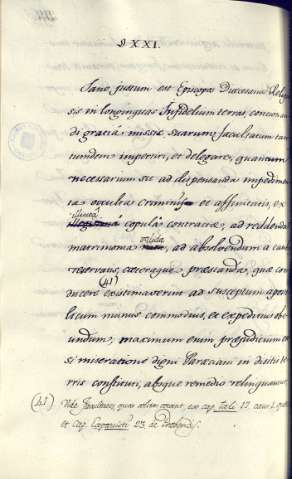 § XXI.
Sane justum est Episcopo Diœcesano Religio
sis in longinquas Infidelium terras, concionan
di gratia, missis suarum facultatum tan
tundem impertiri, et delegare, quantum
necessarium sit ad dispensanda impedimen
ta occulta criminis et affinitatis, ex
illicita
copula contractæ, ad reddenda
matrimonia valida, ad absolvendum a casibus
reservatis, cæteraque præstanda, quæ con
ducere (41) existimaverint ad susceptum aposto
licum munus commodius, et expeditius obe
undum; maximum enim præjudicium es
si miseratione digni Hæretici in dissitis te
rris constituti, absque remedio relinquantur.
(41) Vide facultates, quas olim erant, ex cap.
et Cap. 23 de